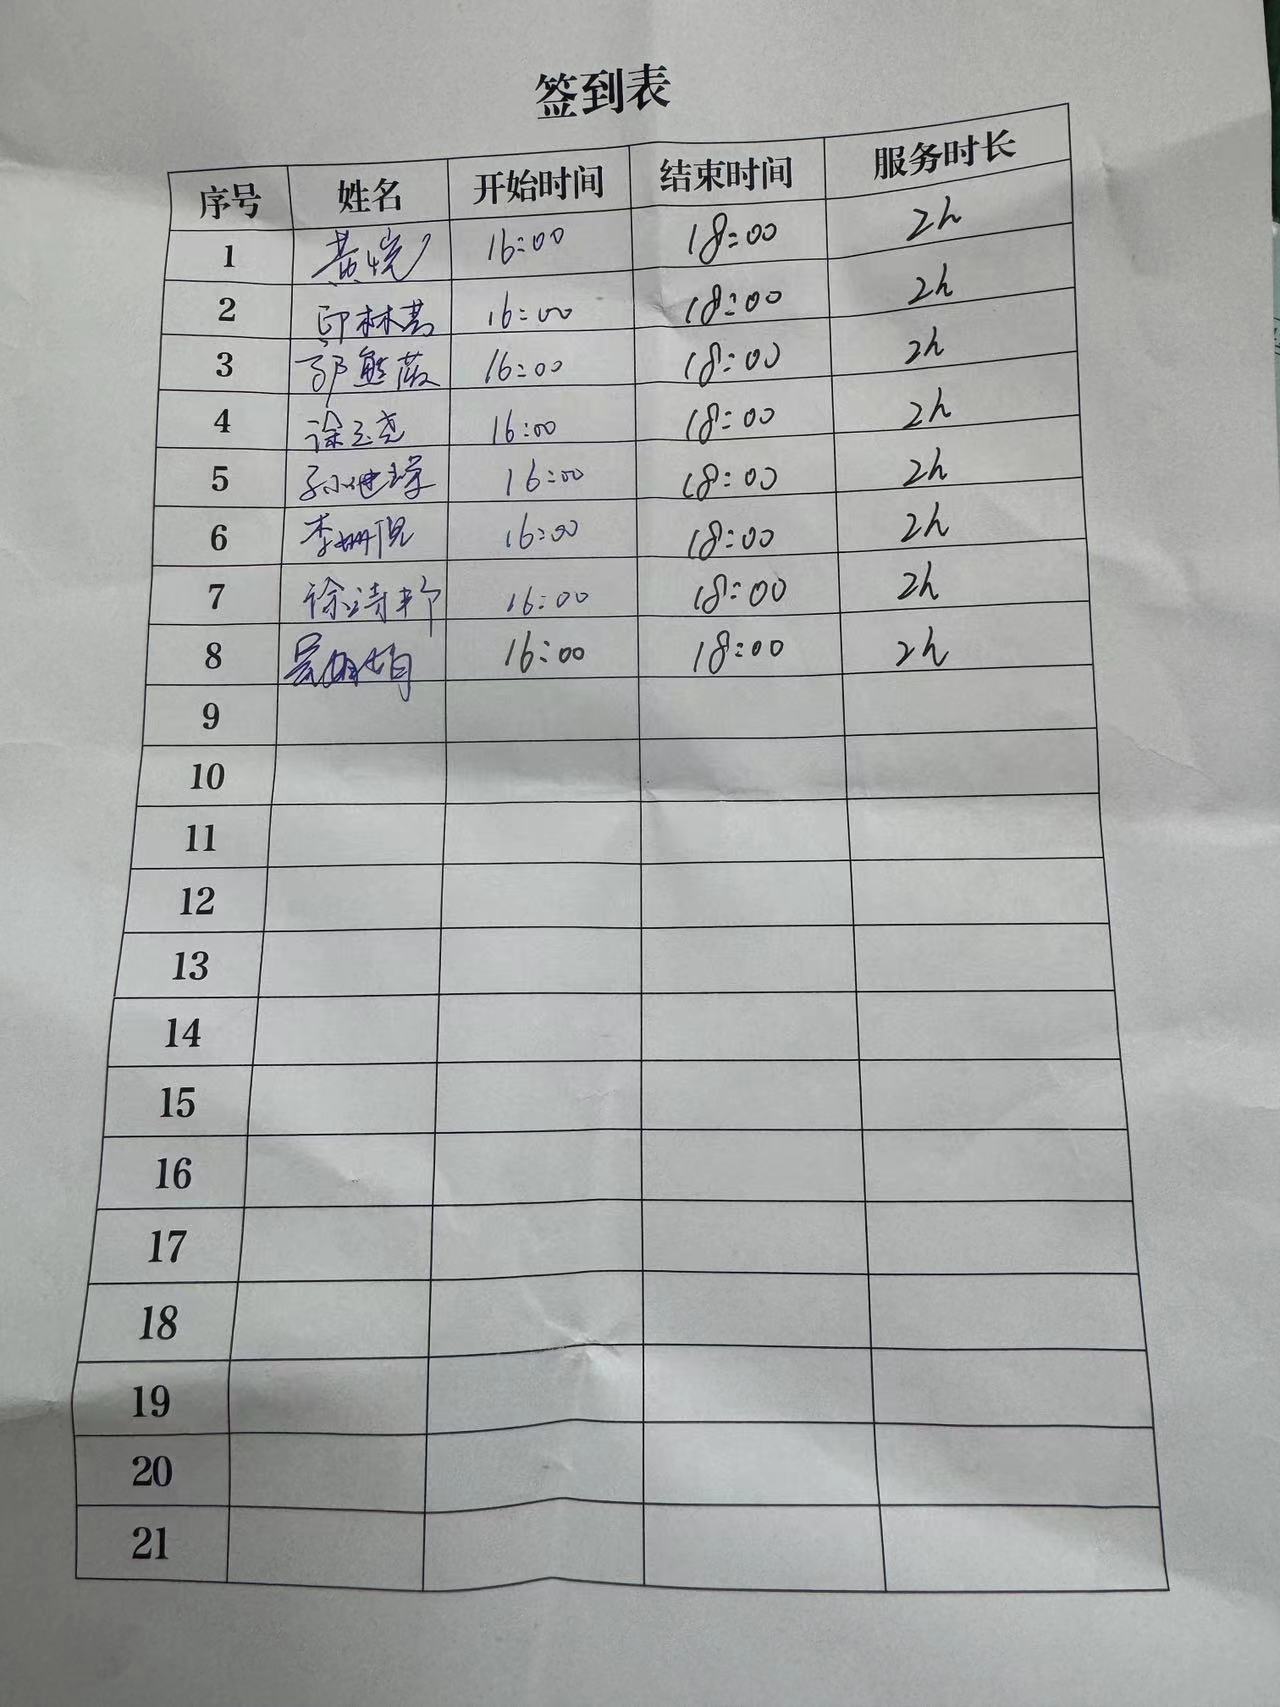 签到表
序号 姓名 开始时间 结束时间 服务时长
1 黄 16:00 18:00 2h
2 印林 16:00 18:00 2h
3 16:00 18:00 2h
4 徐 16:00 18:00 2h
5 孙 16:00 18:00 2h
6 李姗 16:00 18:00 2h
7 徐诗 16:00 18:00 2h
8 吴 16:00 18:00 2h
9
10
11
12
13
14
15
16
17
18
19
20
21